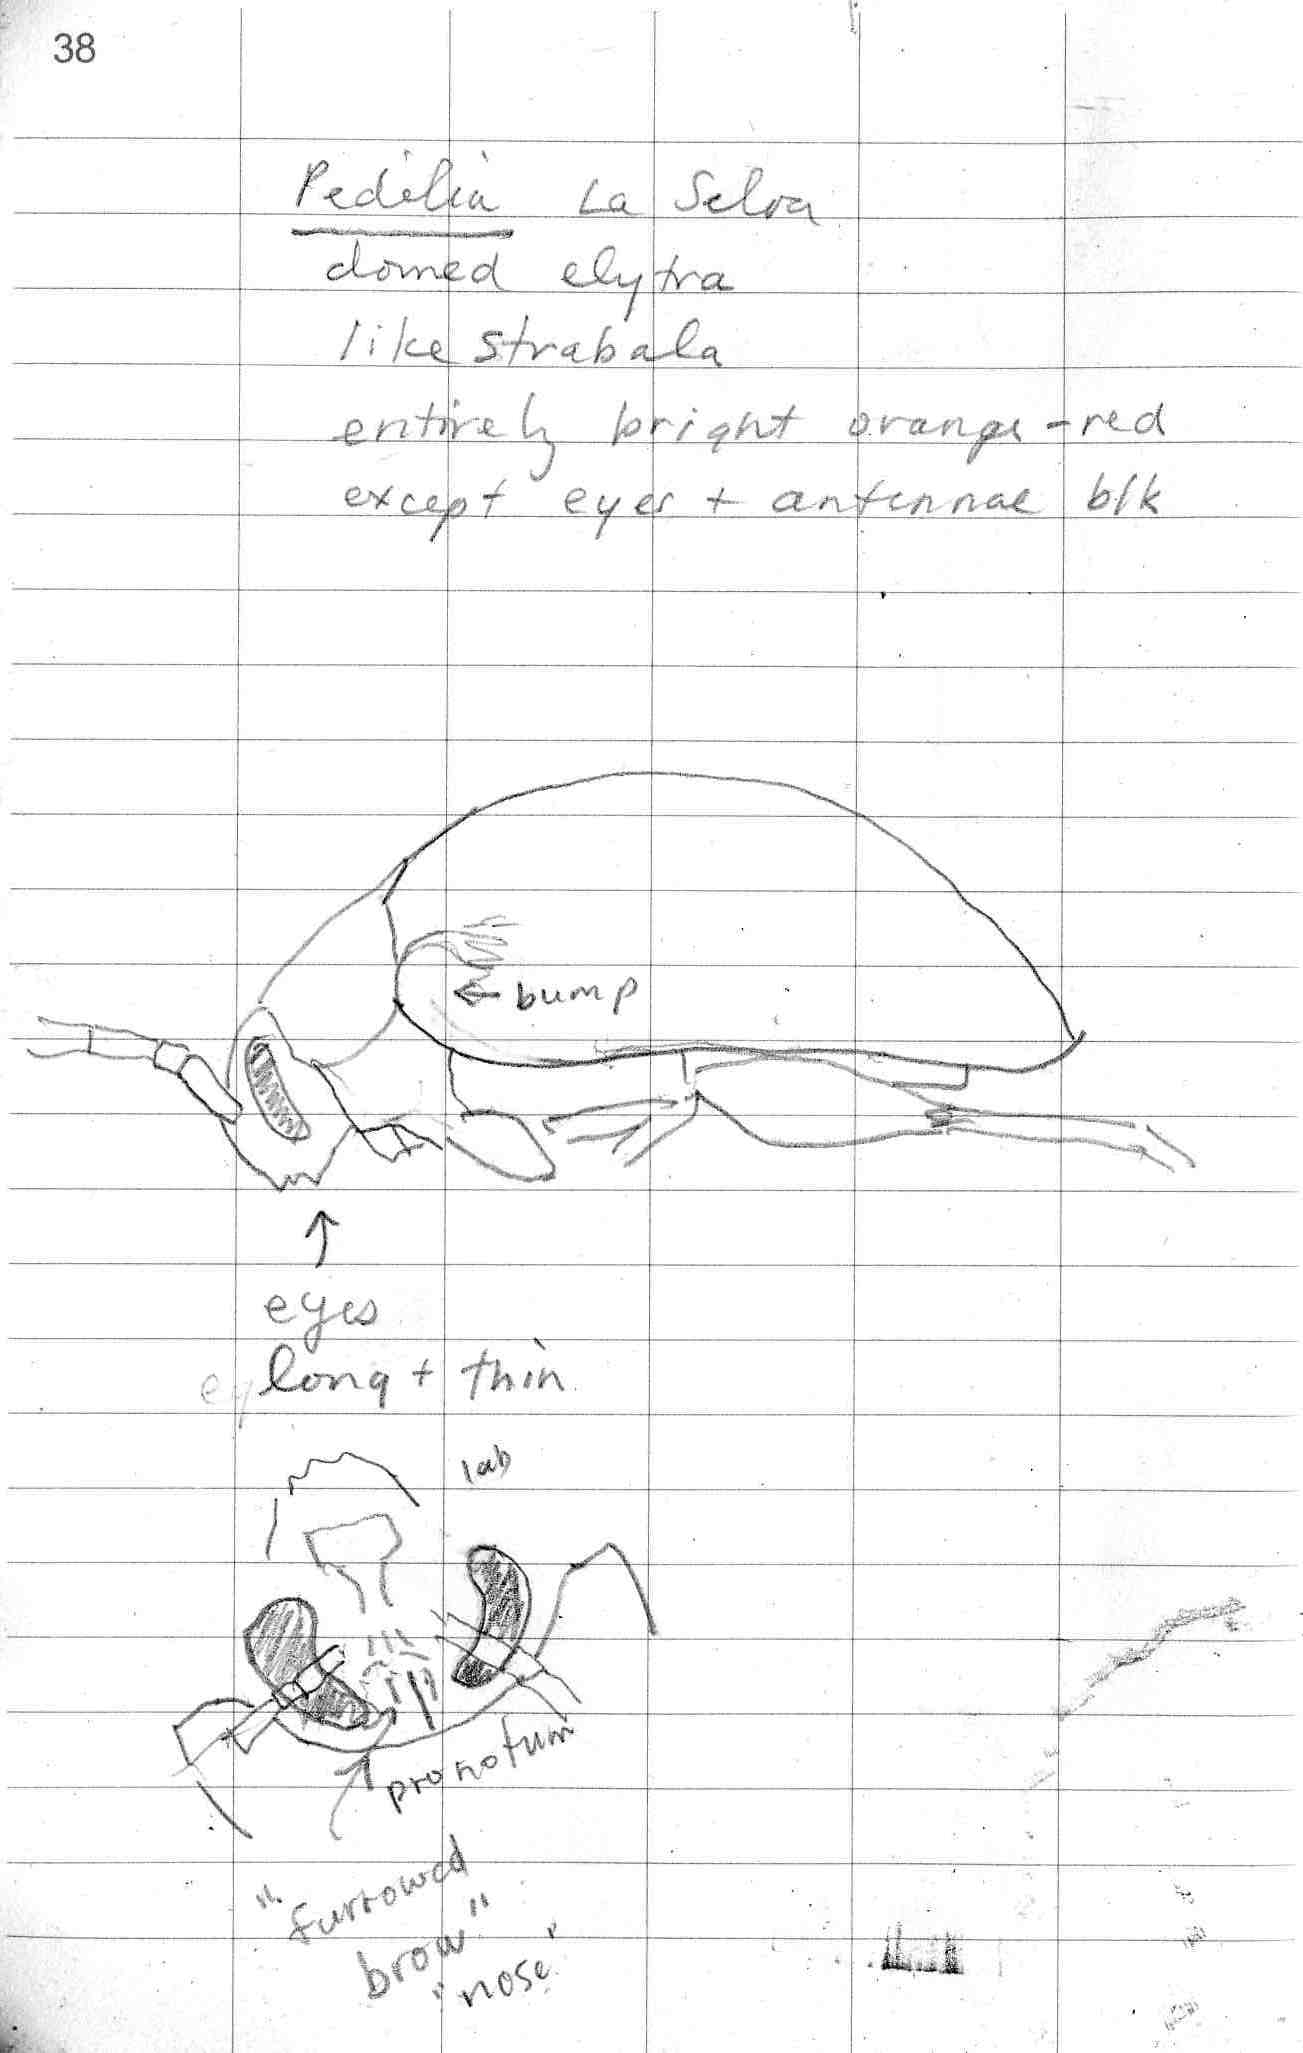 38
Pedilia La Selva
domed elytra
like Strabala
entirely bright orange-red
except eyes + antennae blk
← bump
↑
eyes
long + thin
lab
pronotum
"furrowed
brow"
"nose"